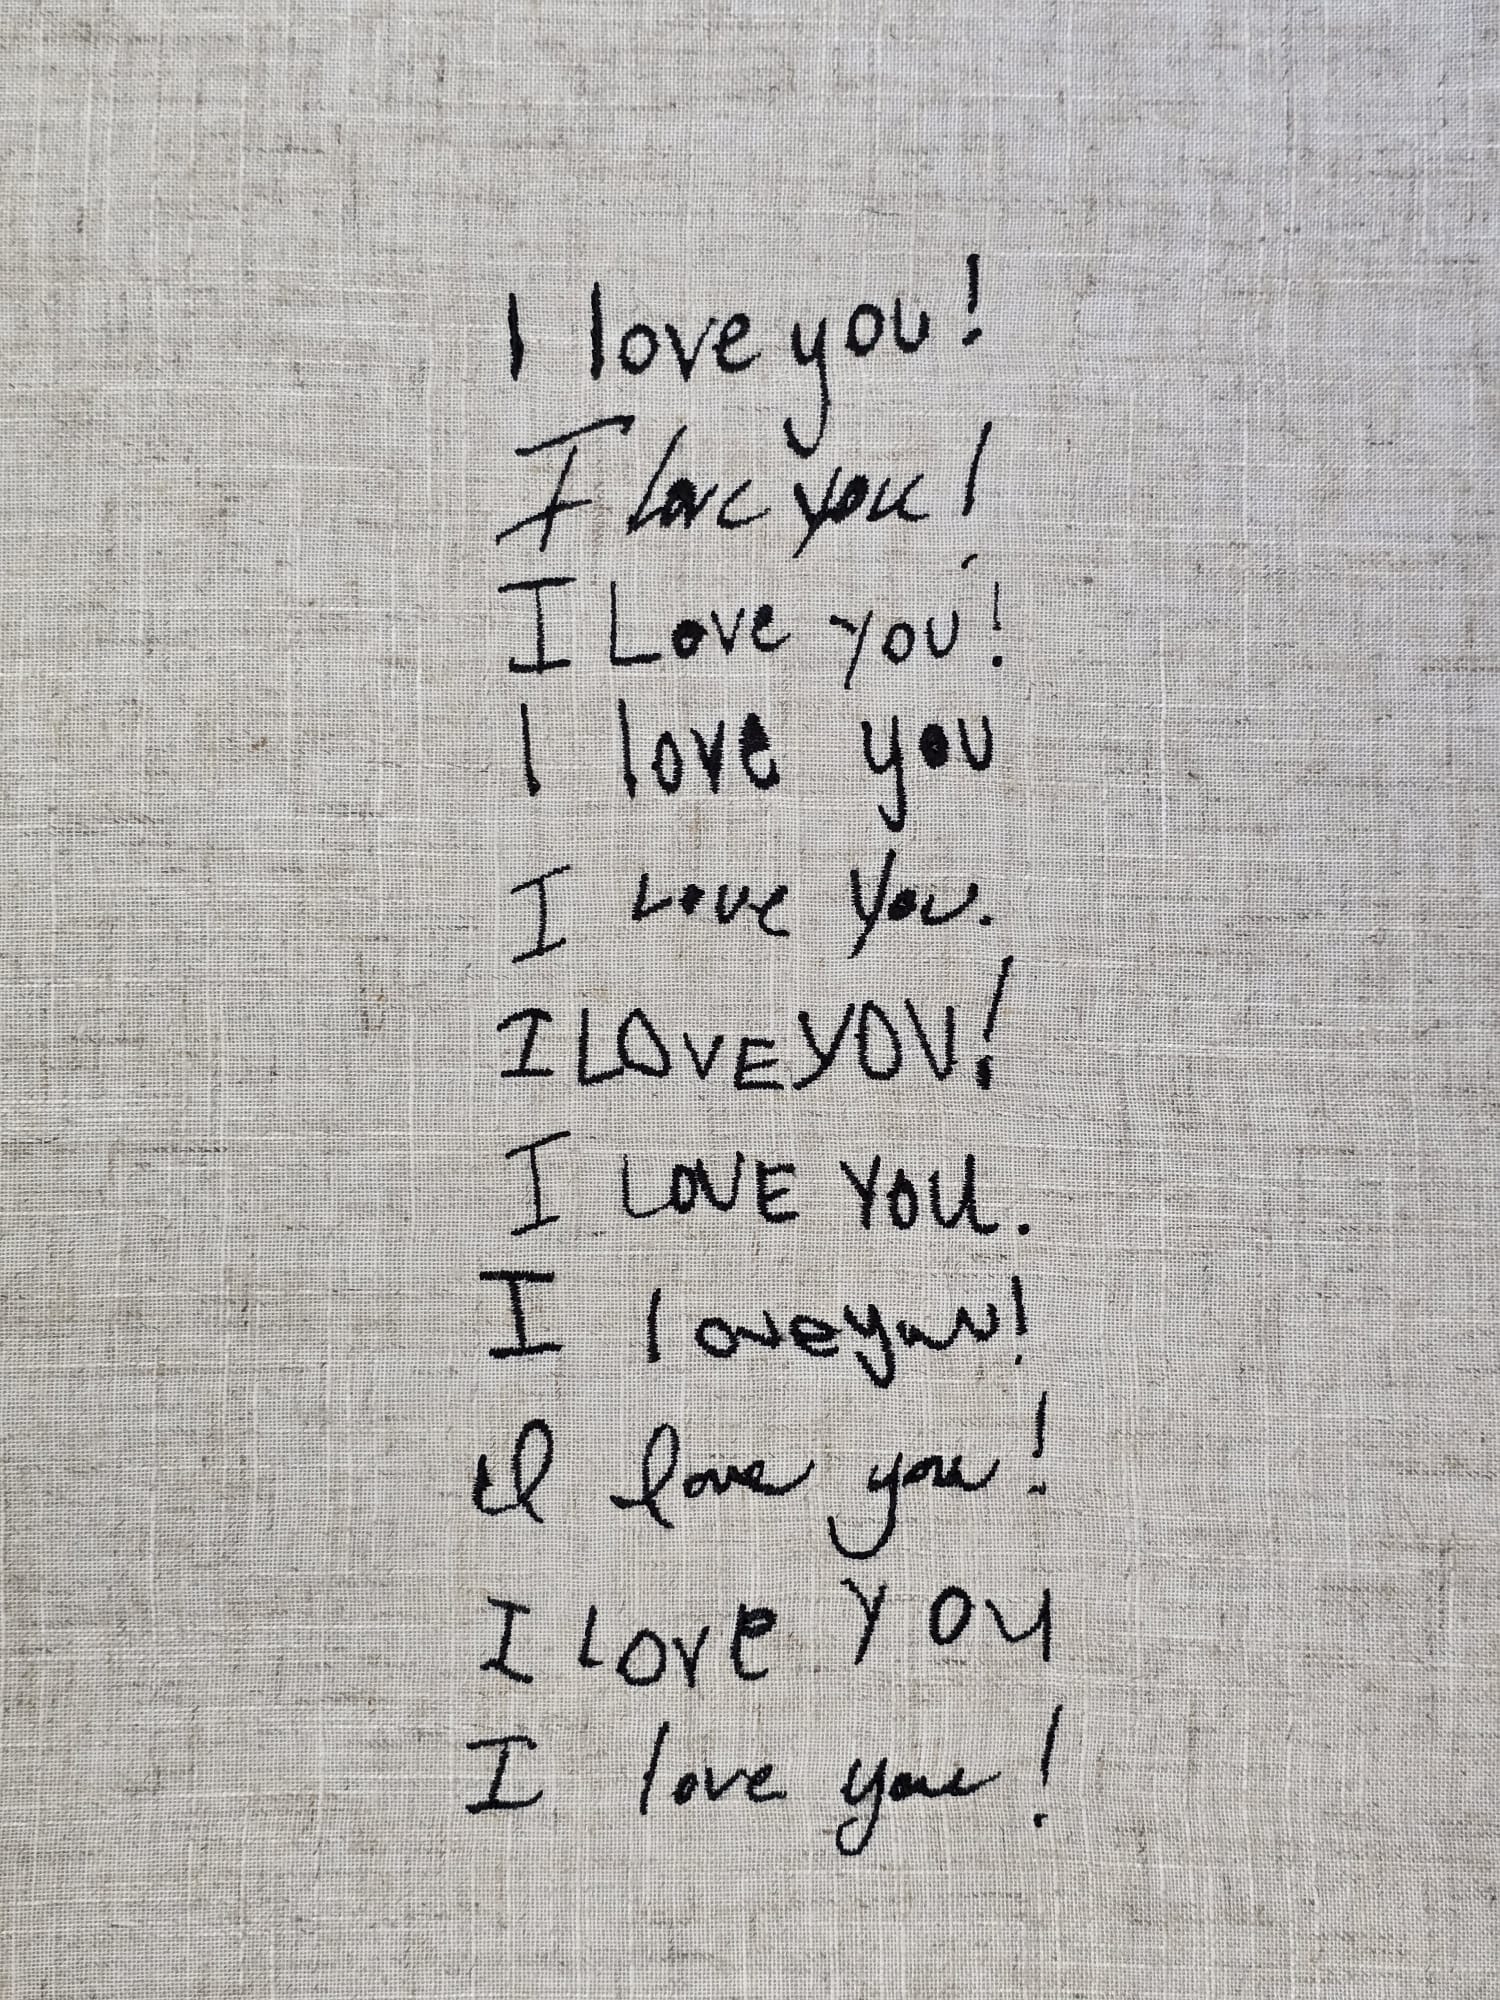 I love you!
I love you!
I Love you!
I love you
I Love You.
I LOVE YOU!
I LOVE YOU.
I love you!
I love you!
I Love you
I love you!